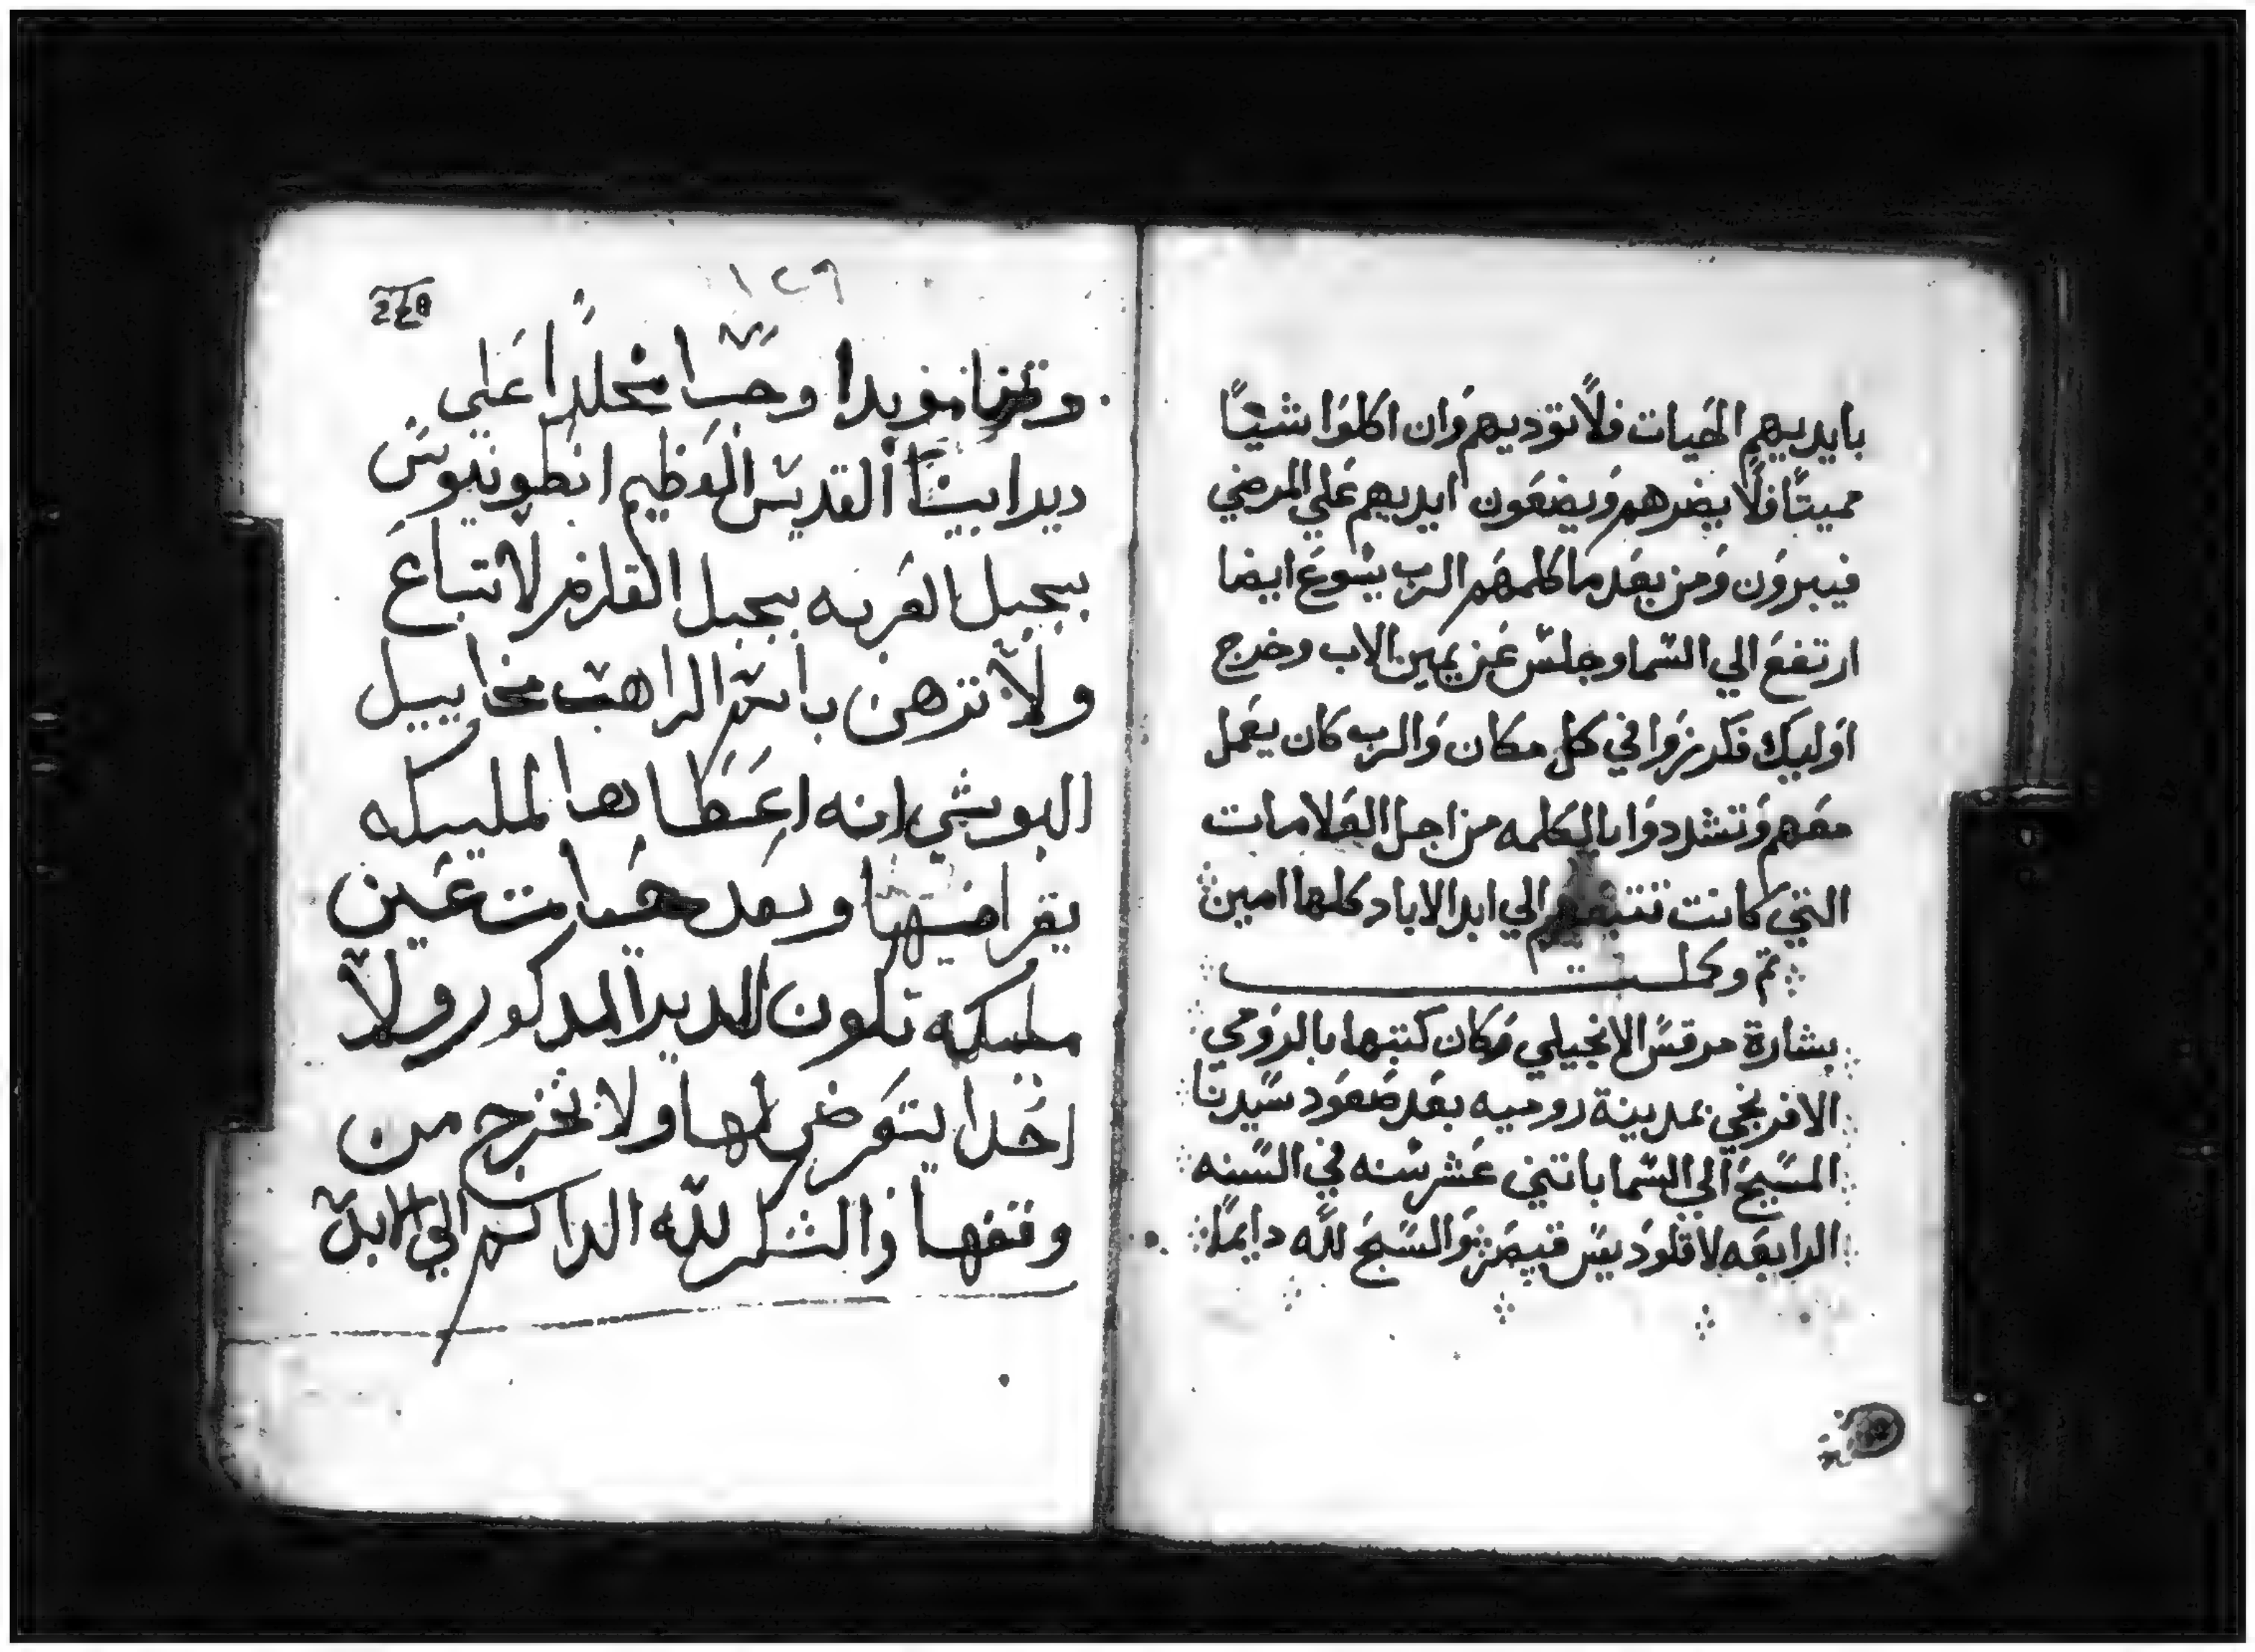 بايديهم الحيات فلا توديهم وان اكلوا شيًا
مميتًا فلا يضرهم ويضعون ايديهم علي المرضي
فيبرون ومن بعد ما كلمهم الرب يسوع ايضا
ارتفع الي السما وجلس عن يمين الاب وخرج
اوليك فكرزوا في كل مكان والرب كان يعمل
معهم وتشددوا بالكلمه من اجل العلامات
التي كانت تتبعهم الي ابد الاباد كلها امين
تم وكملت
بشارة مرقس الانجيلي وكان كتبها بالرومي
الافرنجي بمدينة روميه بعد صعود سيدنا
المسيح الي السما باتني عشر سنه في السنه
الرابعه لاقلوديس قيصر والسبح لله دايمًا
١٢٩
وقفا مويدا وحبسا مخلدا علي
دير ابينا القديس العظيم انطونيوس
بجبل العربه بجبل القلزم لا تباع
ولا ترهن باسم الراهب مخاييل
البوشي انه اعطاها لمليكه
يقرا فيها وبعد حياة عين
مليكه تكون للدير المدكور ولا
احدا يتعرض لها ولا تخرج من
وقفها والشكر لله الدايم الي الابد